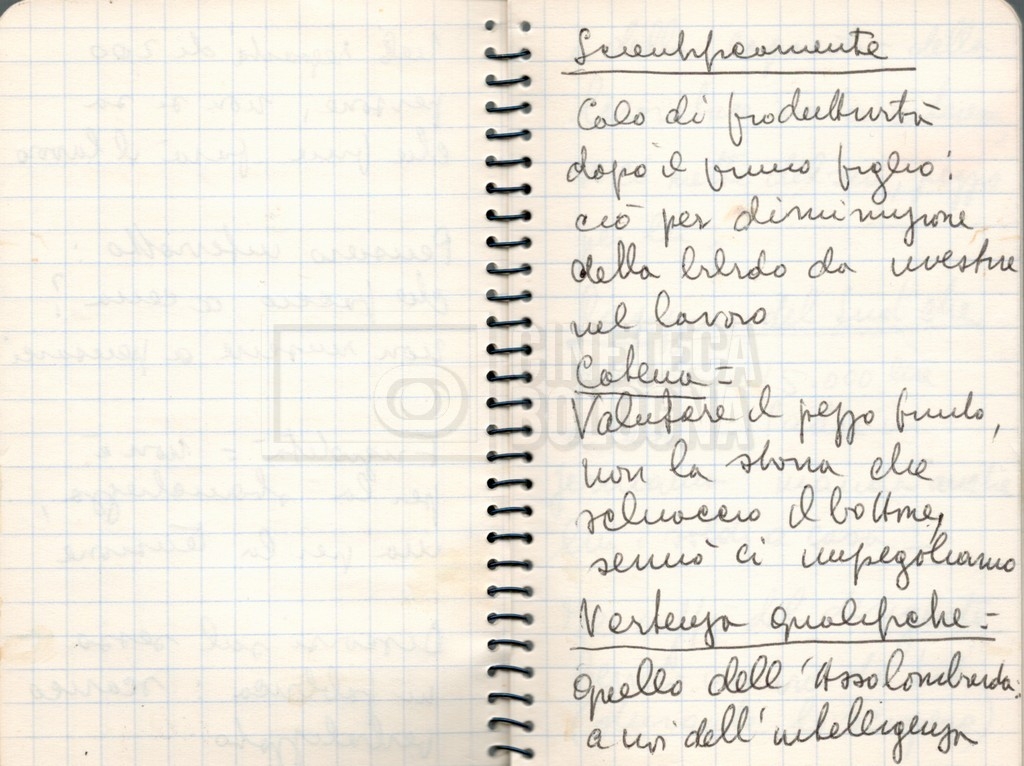 Scientificamente
Calo di produttività
dopo il primo figlio:
ciò per diminuzione
della libido da investire
nel lavoro
CINETECA
BOLOGNA
Catena =
Valutare il pezzo finito,
non la storia che
schiaccio il bottone,
sennò ci impegoliamo
Vertenza qualifiche =
Quello dell'Assolombarda:
a voi dell'intelligenza